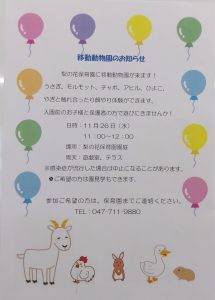 移動動物園のお知らせ
梨の花保育園に移動動物園が来ます！
うさぎ、モルモット、チャボ、アヒル、ひよこ、
やぎと触れ合ったり餌やり体験ができます。
入園前のお子様と保護者の方で遊びにきませんか！
日時：11月26日（水）
11：00～12：00
場所：梨の花保育園園庭
雨天：遊戯室、テラス
※感染症が流行した場合は中止になることがあります。
ご希望の方は園見学もできます。
参加ご希望の方は、保育園までご連絡ください。
TEL：047-711-9880